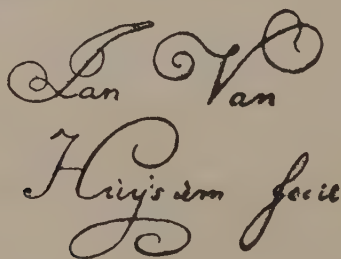 Jan Van
Huysum fecit